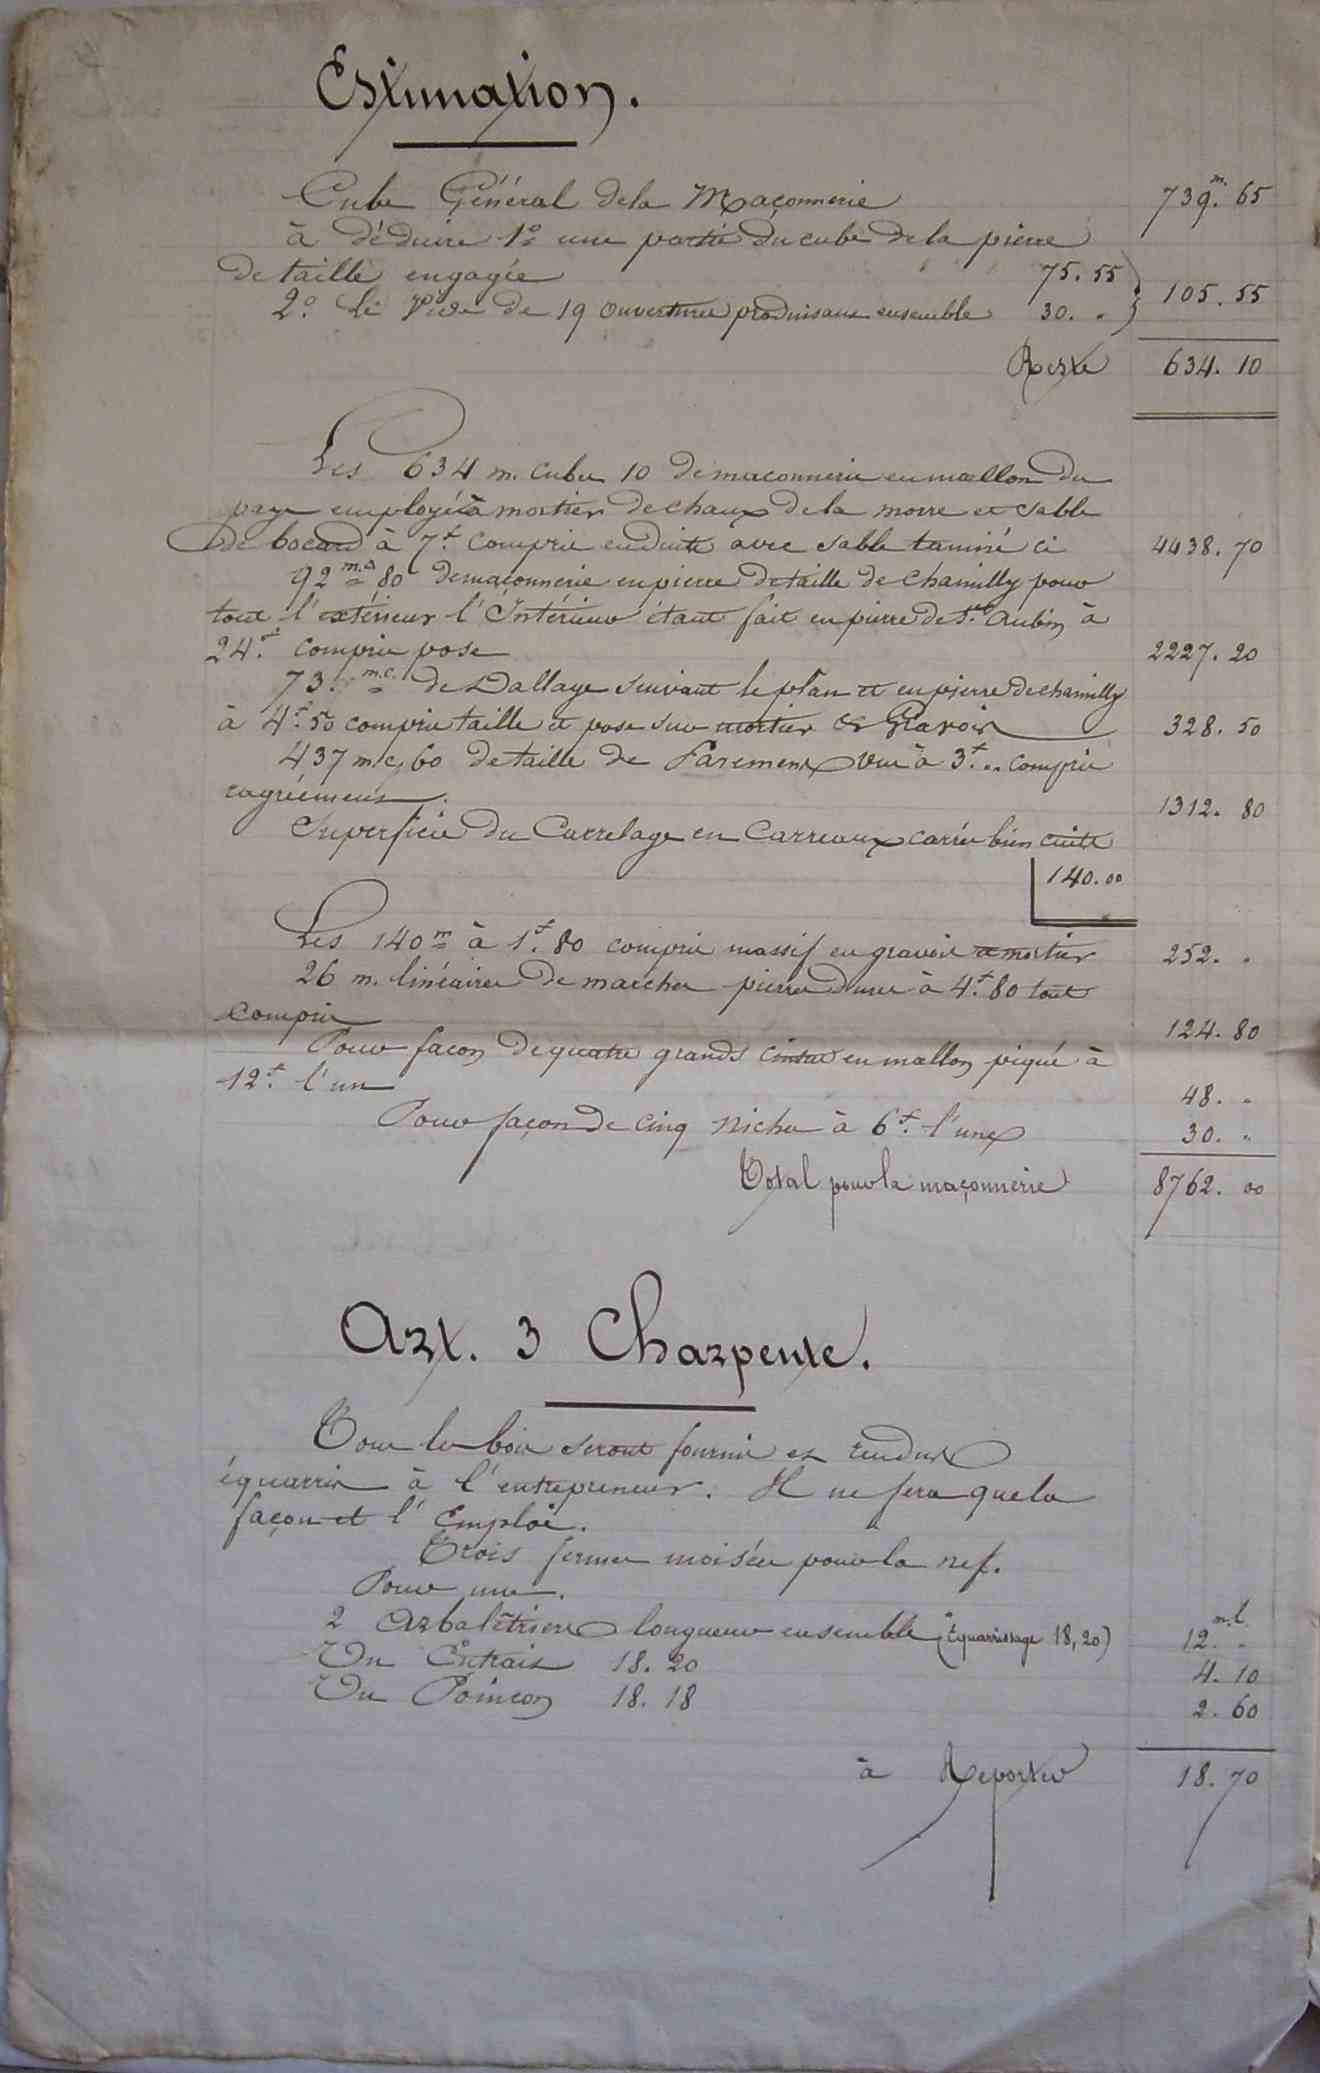 Estimation.
Cube Général de la Maçonnerie 739.m 65
à déduire 1º une partie du cube de la pierre
de taille engagée 75. 55
105. 55
2.º le Vide de 19 ouvertures produisant ensemble 30. "
Reste 634. 10
Les 634 m. cubes 10 de maçonnerie en moellon du
pays employés à mortier de chaux de la morre et sable
de bocard à 7.f compris enduits avec sable tamisé ci 4438. 70
92 m.c 80 de maçonnerie en pierre de taille de Chamilly pour
tout l'extérieur l'Intérieur étant fait en pierre de St. Aubin à
24.f compris pose 2227. 20
73. m.c. de Dallage suivant le plan et en pierre de chamilly
à 4.f 50 compris taille et pose sur mortier et Gravois 328. 50
437 m.c, 60 de taille de Parement vu à 3.f .. compris
ragréement. 1312. 80
Superficie du Carrelage en Carreaux carrés bien cuits
140. 00
Les 140 m à 1.f 80 compris massif en gravois et mortier 252. "
26 m. linéaires de marches pierre dure à 4.f 80 tout
compris 124. 80
Pour façon de quatre grands cintres en moellon piqué à
12.f l'un 48. "
Pour façon de cinq niches à 6.f l'une 30. "
Total pour la maçonnerie 8762. 00
Art. 3 Charpente.
Tous les bois seront fournis et rendus
équarris à l'entrepreneur. Il ne fera que la
façon et l'Emploi.
Trois fermes moisées pour la nef.
Pour une.
2 Arbalêtriers longueur ensemble (Equarrissage 18, 20) 12.m.l. "
Un Entrait 18. 20 4. 10
Un Poinçon 18. 18 2. 60
à Reporter 18. 70